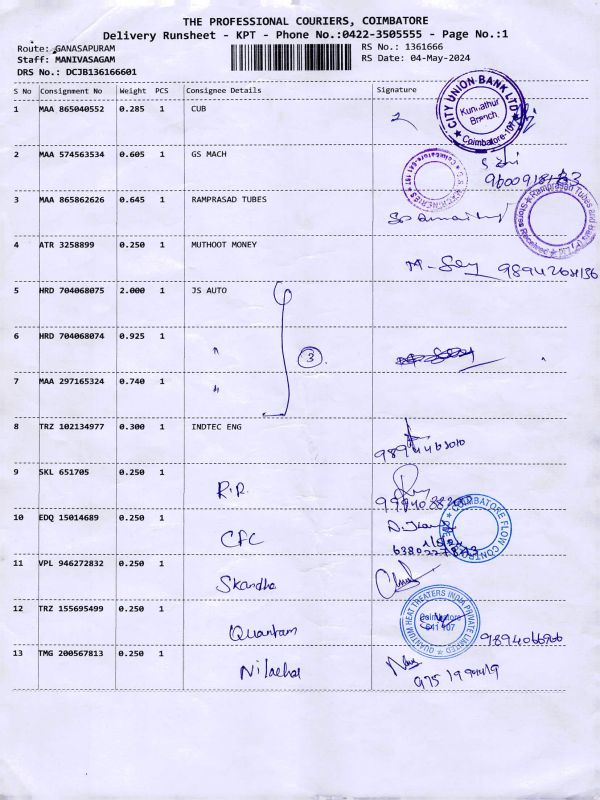 THE PROFESSIONAL COURIERS, COIMBATORE
Delivery Runsheet - KPT - Phone No.:0422-3505555 - Page No.:1
Route: GANASAPURAM RS No.: 1361666
Staff: MANIVASAGAM RS Date: 04-May-2024
DRS No.: DCJB136166601
S No Consignment No Weight PCS Consignee Details Signature
1 MAA 865040552 0.285 1 CUB
CITY UNION BANK LTD
Kurinathur
Branch
Coimbatore-107
2 MAA 574563534 0.605 1 GS MACH
3 MAA 865862626 0.645 1 RAMPRASAD TUBES
Ramprasad Tubes and Stores
Received
4 ATR 3258899 0.250 1 MUTHOOT MONEY
5 HRD 704068075 2.000 1 JS AUTO
6 HRD 704068074 0.925 1 "
3
7 MAA 297165324 0.740 1 "
8 TRZ 102134977 0.300 1 INDTEC ENG
9 SKL 651705 0.250 1 R.R.
10 EDQ 15014689 0.250 1 CFC
COIMBATORE FLOW CONTROL
11 VPL 946272832 0.250 1 Skandha
12 TRZ 155695499 0.250 1 Quantam
QUANTUM HEAT TREATERS INDIA PRIVATE LIMITED
Coimbatore
641 107
9894066966
13 TMG 200567813 0.250 1